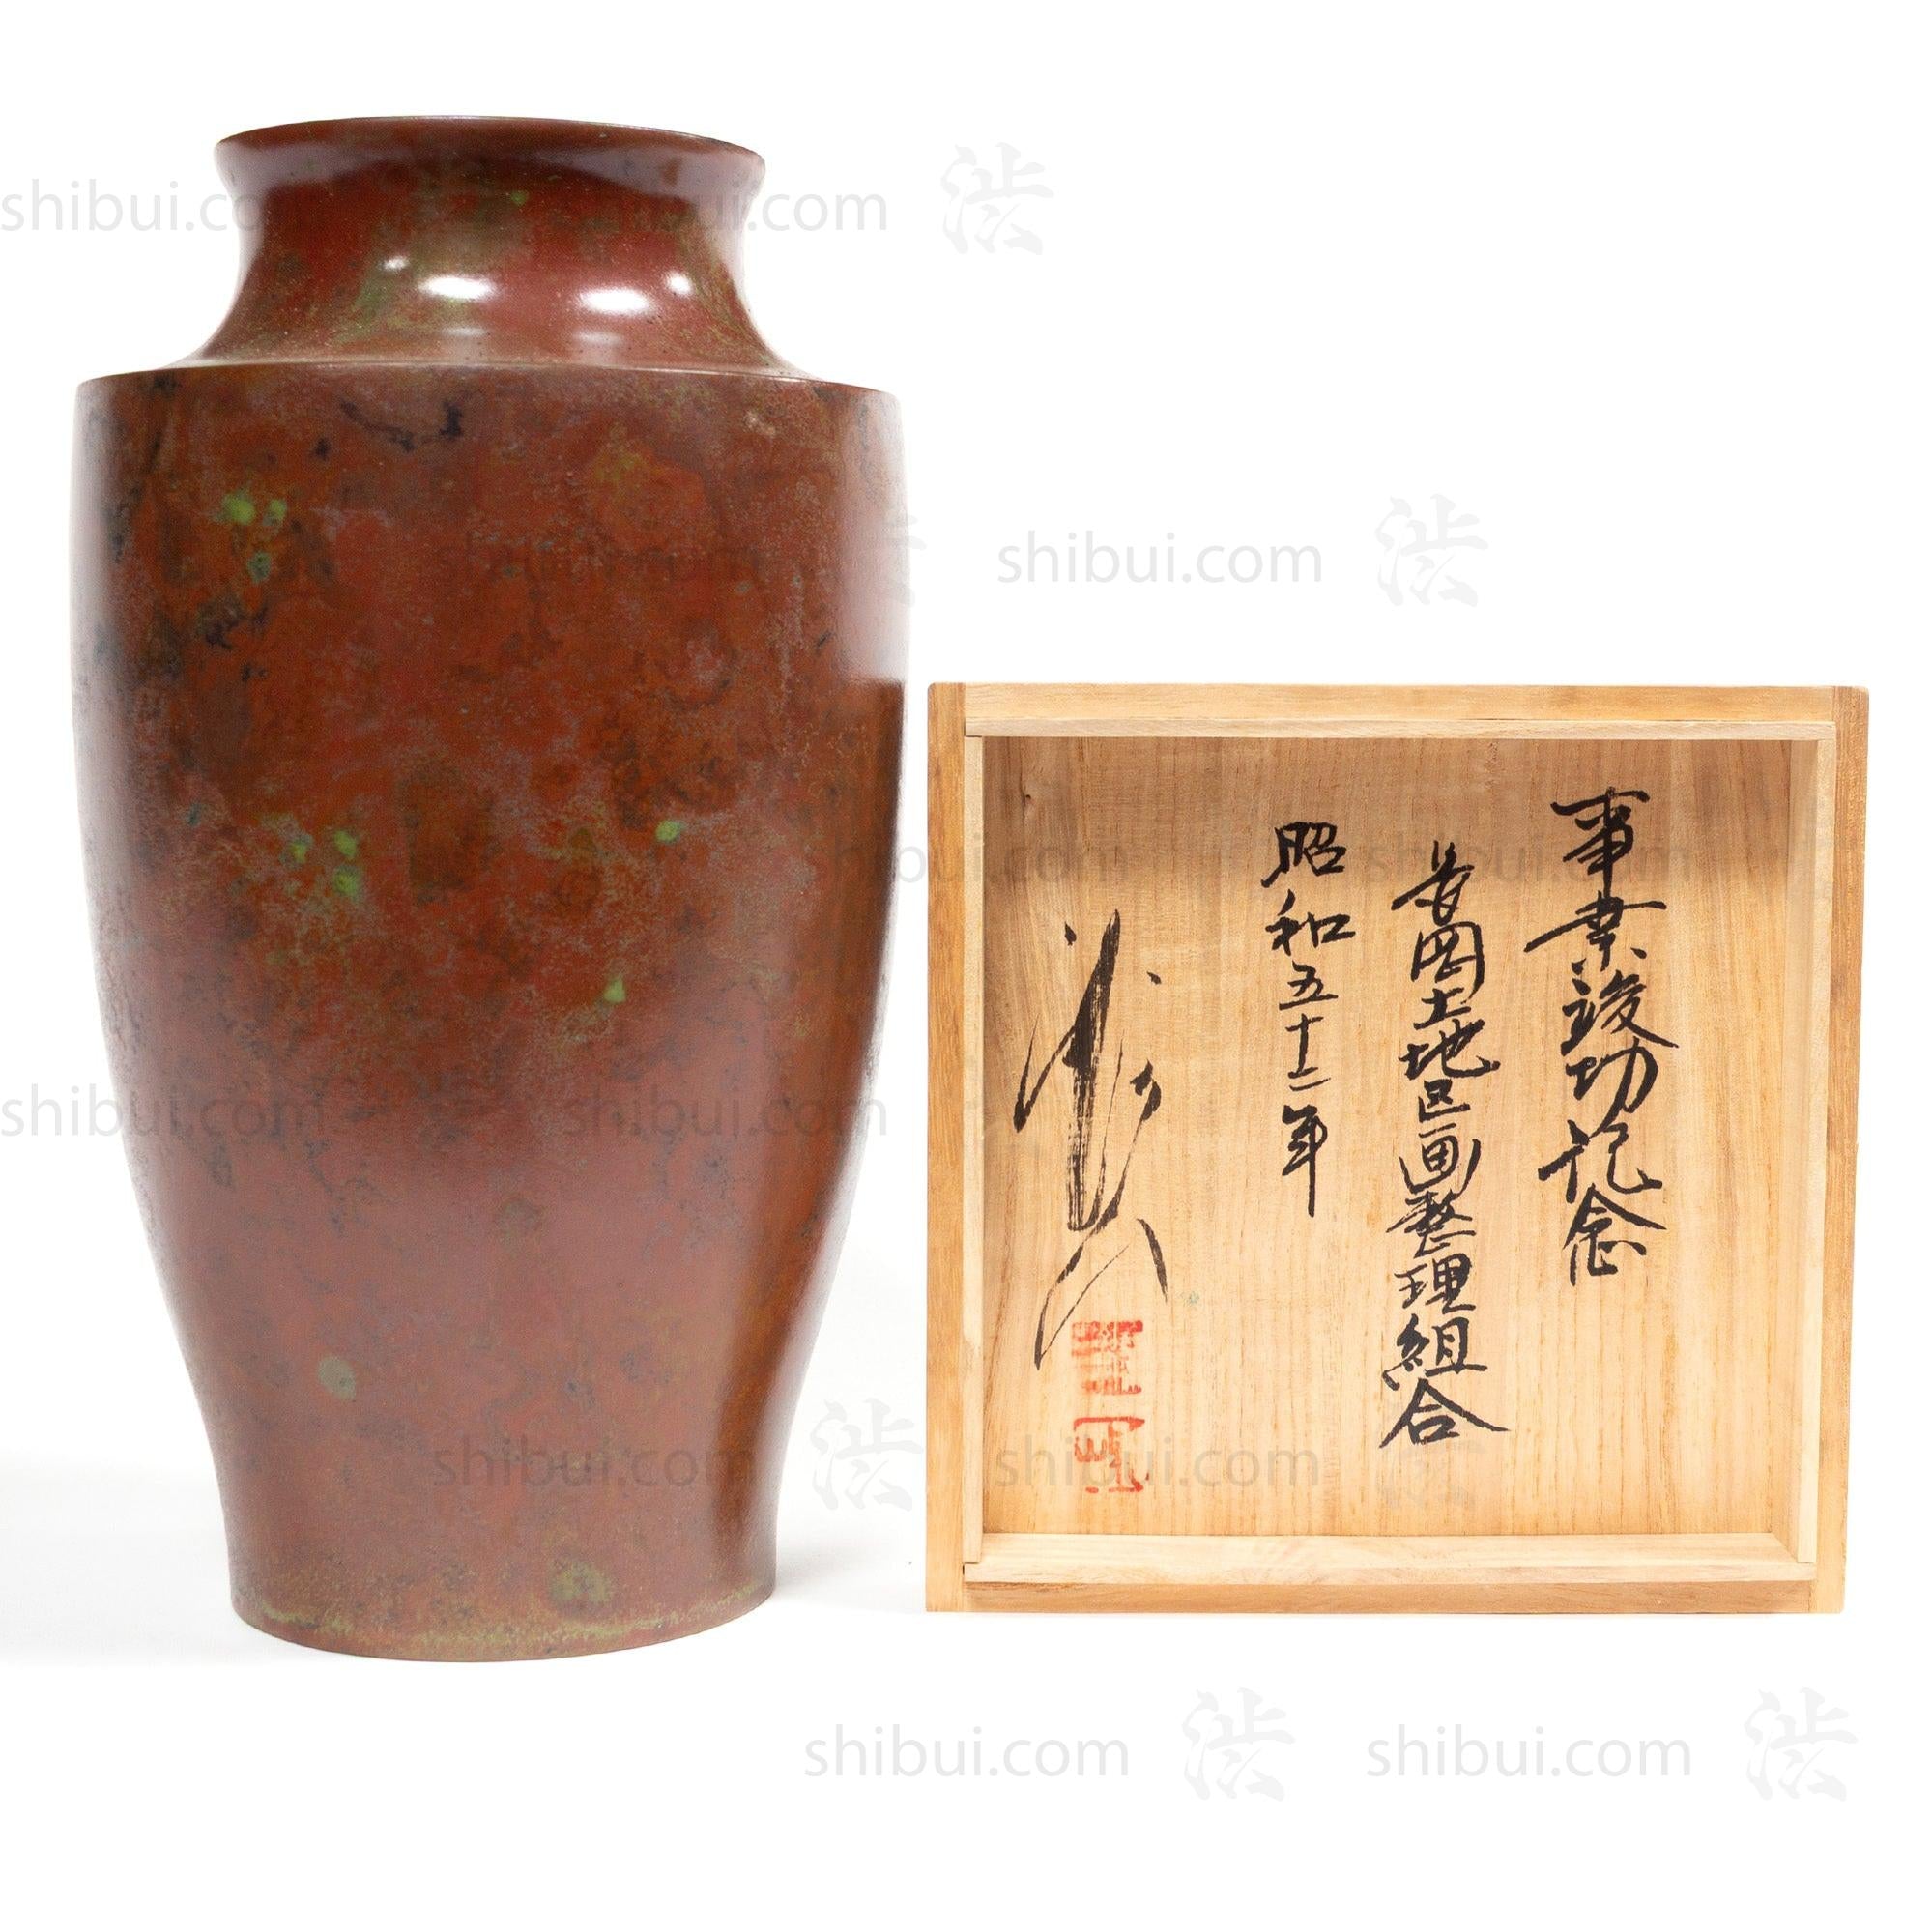 事業竣功記念
長岡土地区画整理組合
昭和五十二年
shibui.com 渋
shibui.com 渋
shibui.com 渋
shibui.com 渋
shibui.com
shibui.com
shibui.com
shibui.com
shibui.com 渋
shibui.com 渋
shibui.com 渋
shibui.com 渋